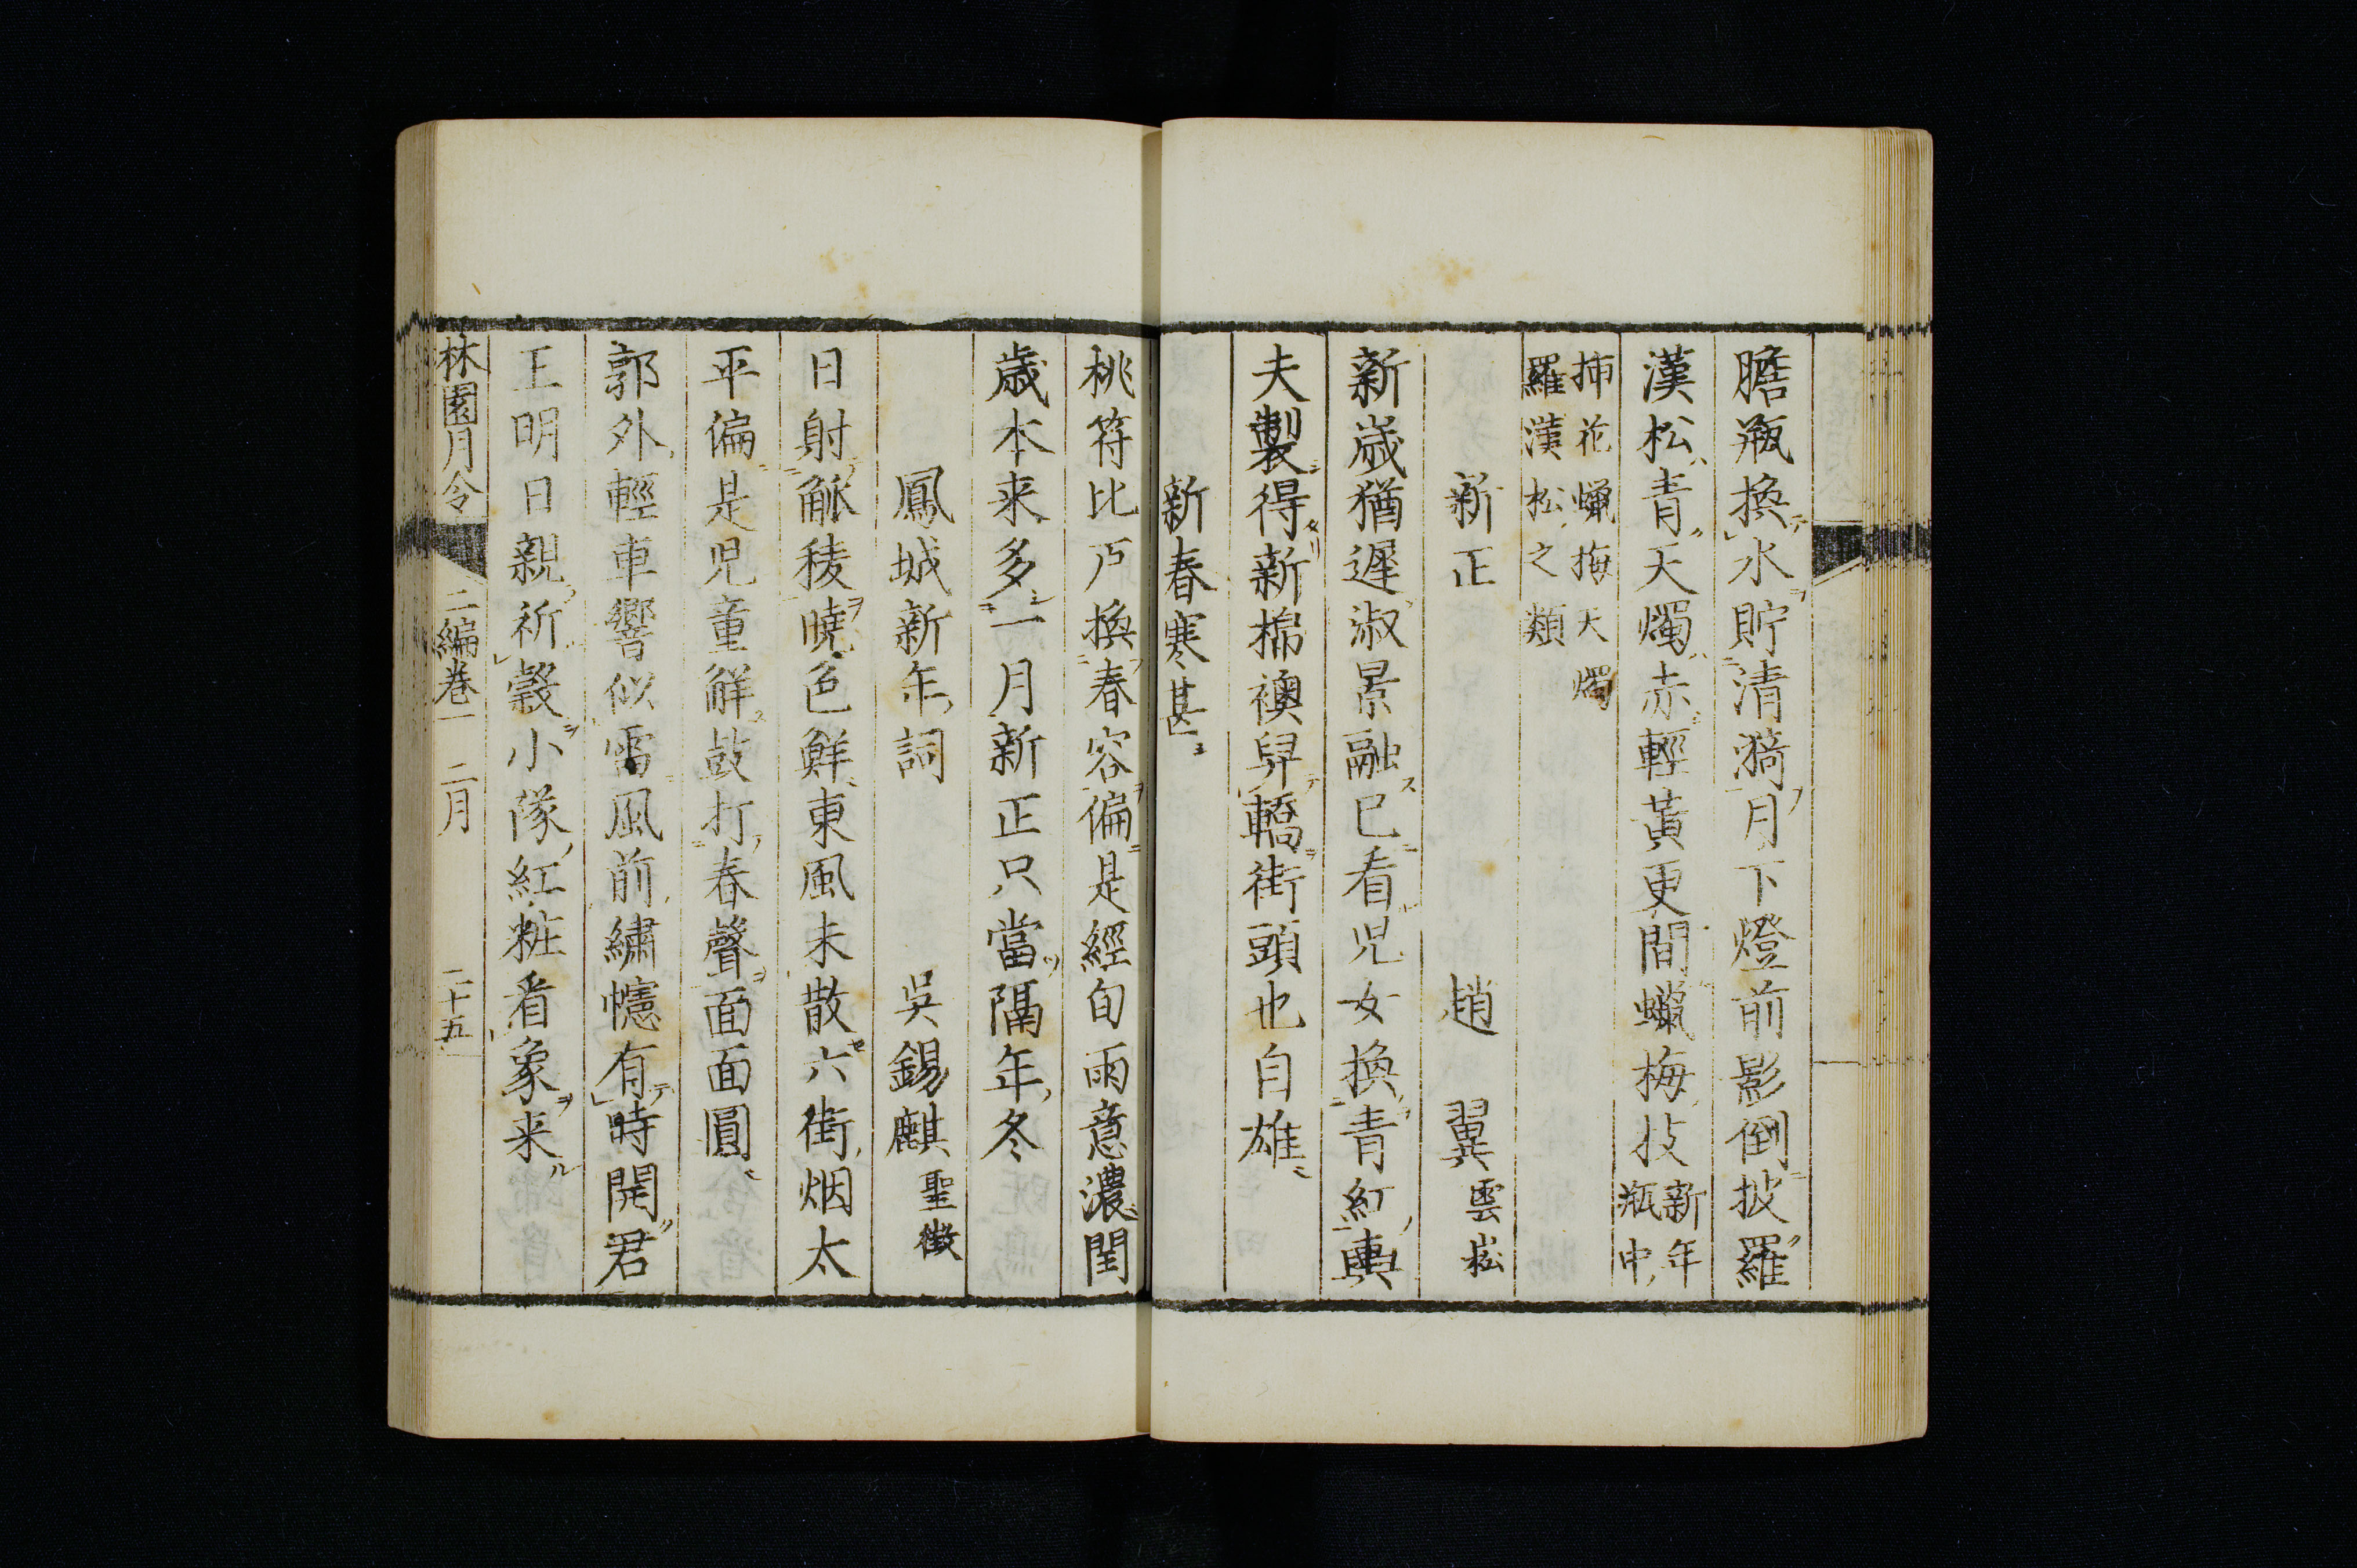 膽瓶換水貯清漪月下燈前影倒披羅
漢松青天燭赤輕黃更間蠟梅枝新年
瓶中
挿花蠟梅天燭
羅漢松之類
新正 趙 翼雲崧
新歲猶遲淑景融已看児女換青紅輿
夫製得新棉襖舁轎街頭也自雄
新春寒甚
桃符比戸換春容偏是經旬雨意濃閏
歲本来多一月新正只當隔年冬
鳳城新年詞 吳錫麒聖徵
日射觚稜曉色鮮東風未散六街烟太
平偏是児童觧鼓打春聲面面圓
郭外輕車響似雷風前繡幰有時開君
王明日親祈穀小隊紅粧看象来
林園月令 二編卷一 二月 二十五